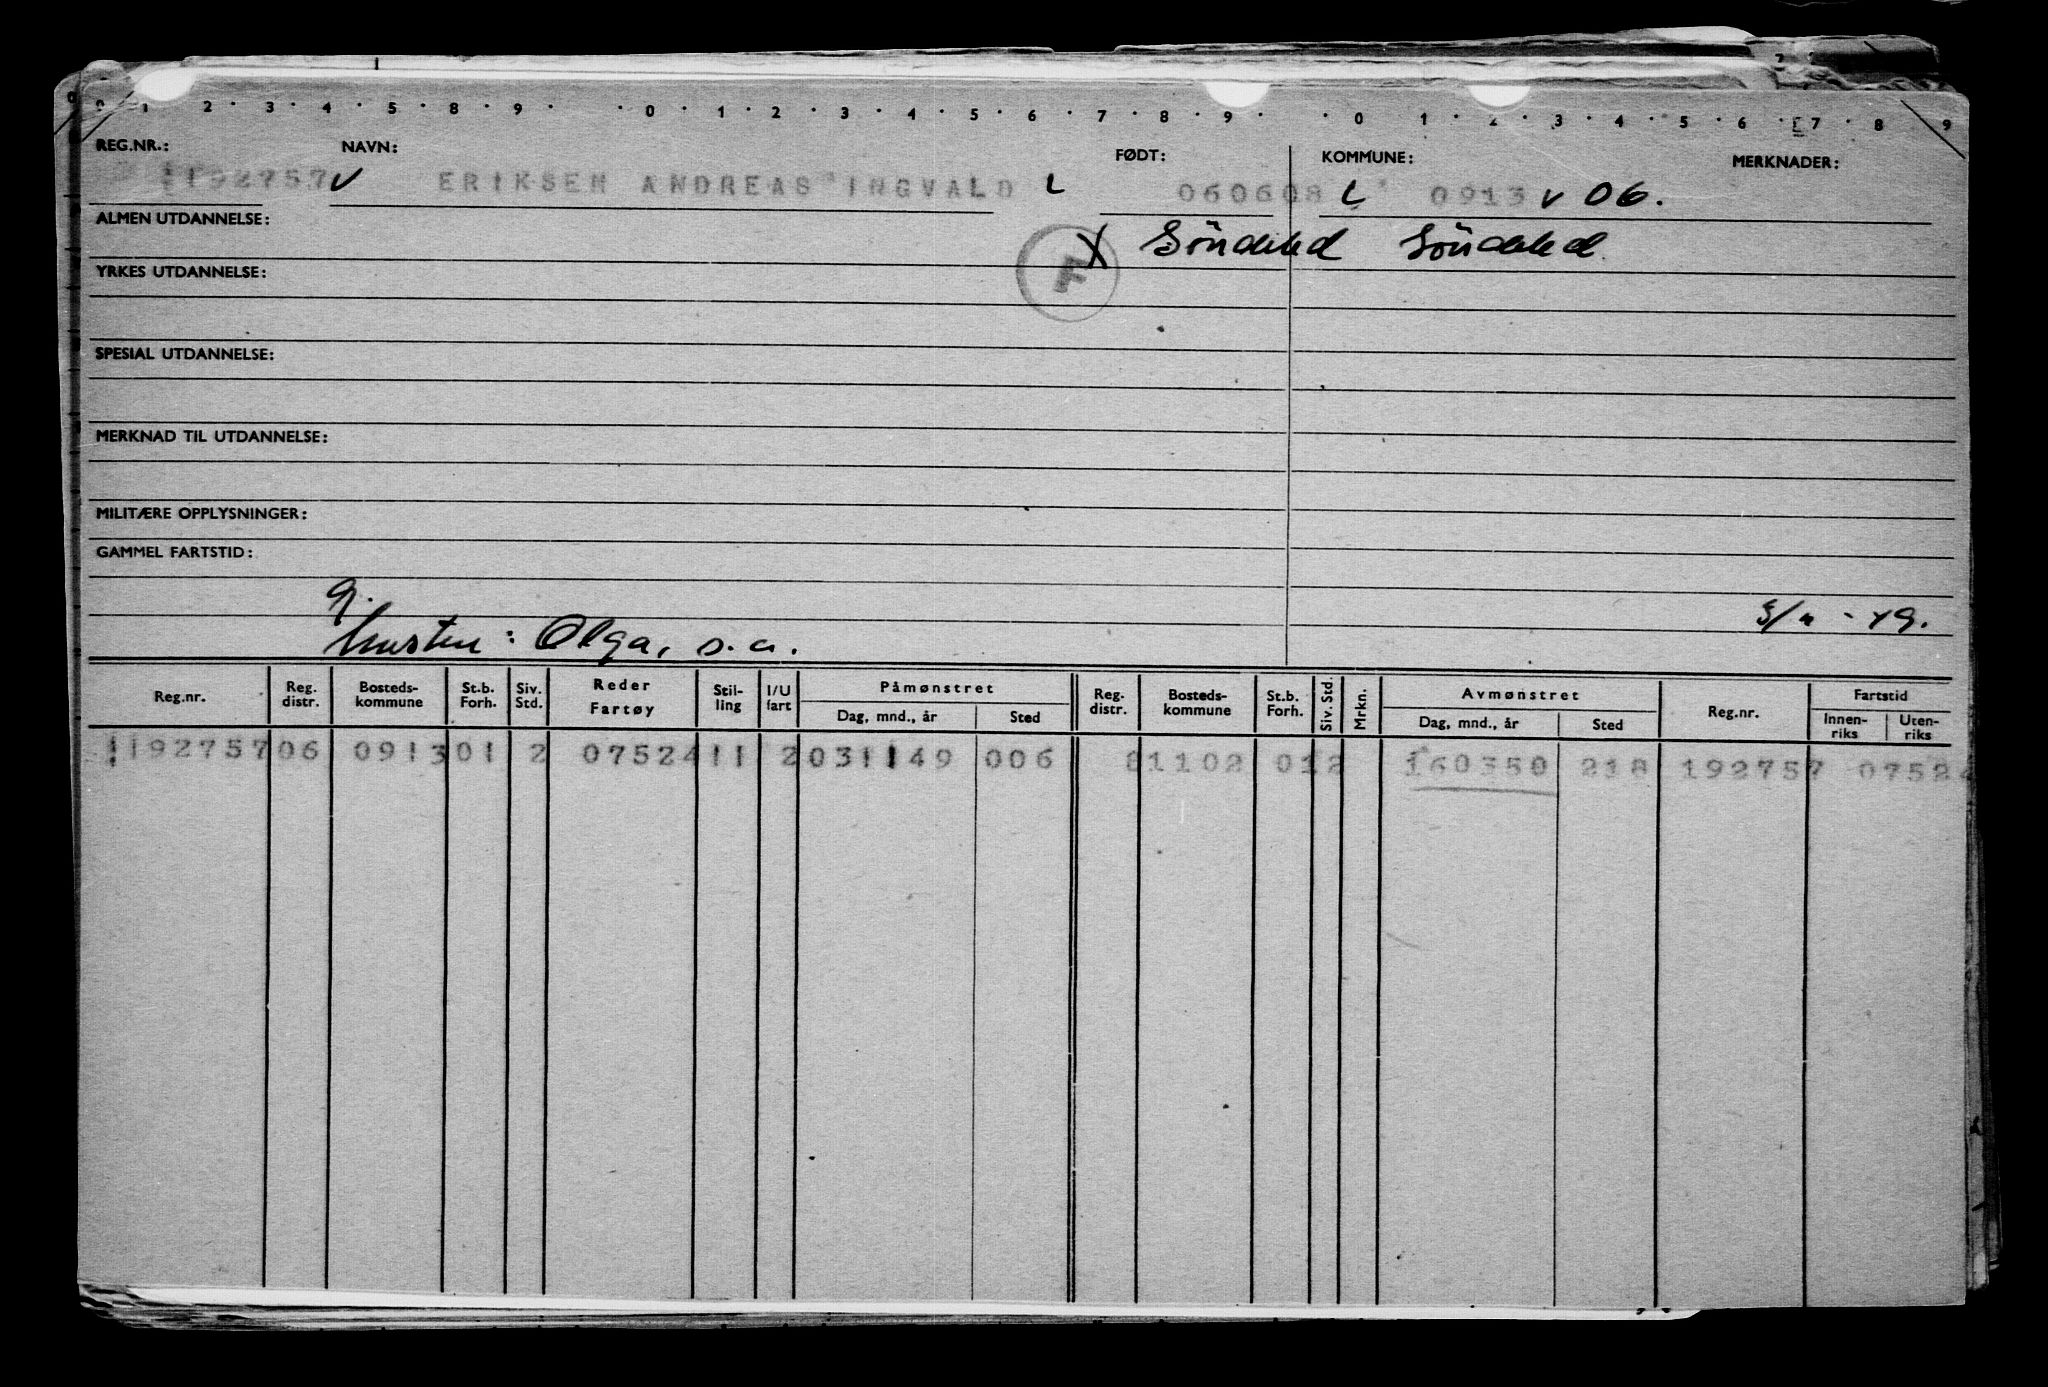 0 1 2 3 4 5 8 9 0 1 2 3 4 5 6 7 8 9 0 1 2 3 4 5 6 7 8 9
REG.NR.: NAVN: FØDT: KOMMUNE: MERKNADER:
192757 v ERIKSEN ANDREAS INGVALD 060608 0913 v 06.
ALMEN UTDANNELSE: X Söndeled Söndeled
YRKES UTDANNELSE: F
SPESIAL UTDANNELSE:
MERKNAD TIL UTDANNELSE:
MILITÆRE OPPLYSNINGER:
GAMMEL FARTSTID:
g.
hustru: Olga, s.a.
Reg.nr. Reg. distr. Bosteds-kommune St.b. Forh. Siv. Std. Reder Fartøy Stil-ling I/U fart Påmønstret Dag, mnd., år Sted Reg. distr. Bosteds-kommune St.b. Forh. Siv. Std. Mrkn. Avmønstret Dag, mnd., år Sted Reg.nr. Fartstid Innen-riks Uten-riks
119275706 091301 2 0752411 2031149 006 1102 012 160350 218 192757 07524